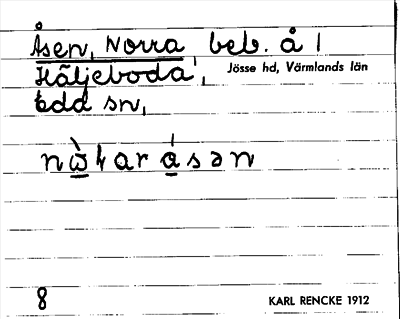 Åsen, Norra, beb. å 1
Häljeboda,
Jösse hd, Värmlands län
Edd sn,
8
KARL RENCKE 1912